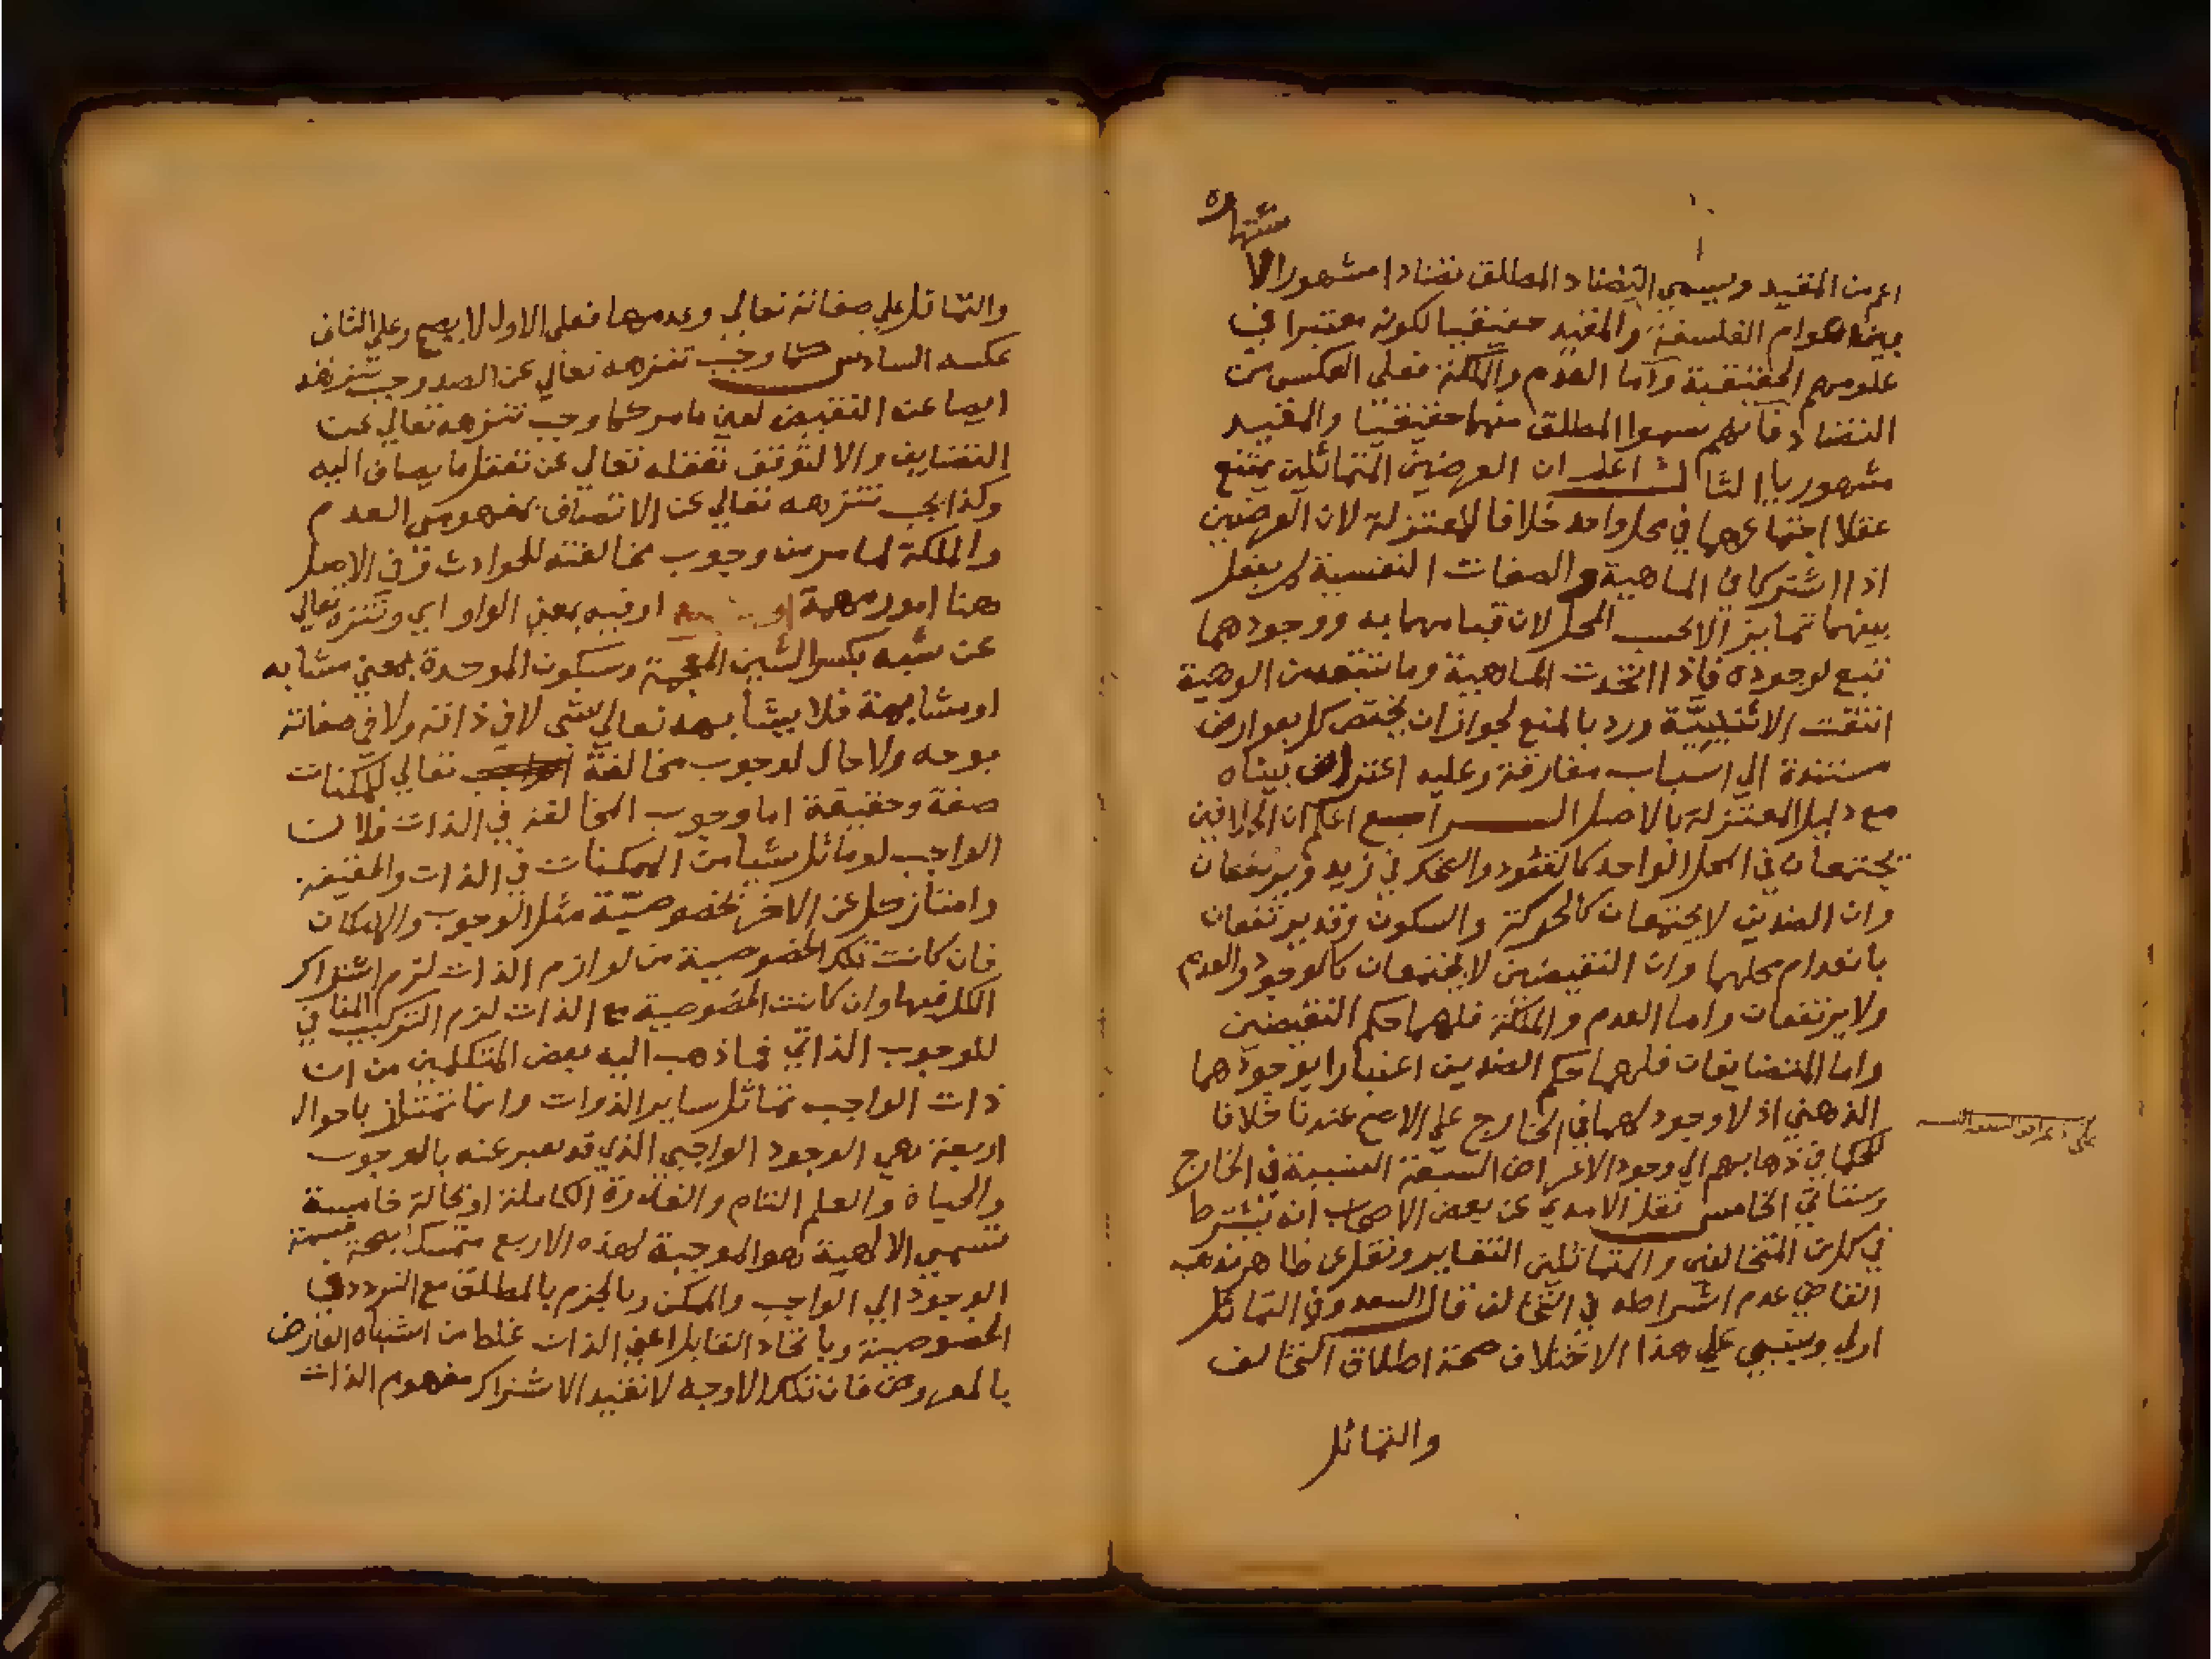 اعم من المقيد ويسمي التضاد المطلق تضادا مشهورا لا
شتهاره
بين عوام الفلسفة والمقيد حقيقيا لكونه معتبرا في
علومهم الحقيقية واما العدم والملكة فعلي العكس من
التضاد فانهم سموا المطلق منهما حقيقيا والمقيد
مشهوريا الثالث اعلم ان العرضين المتماثلين يمتنع
عقلا اجتماعهما في محل واحد خلافا للمعتزلة لان العرضين
اذا اشتركا في الماهية والصفات النفسية لم يعقل
بينهما تمايز الا بحسب المحل لان قيامهما به ووجودهما
تبع لوجوده فاذا اتحدت الماهية وما تتبعه من الوهية
انتفت الاثنينية ورد بالمنع لجواز ان يختص كل بعوارض
مستندة الي اسباب مفارقة وعليه اعتراض بيناه
مع دليل المعتزلة بالاصل الرابع اعلم ان الخلافين
يجتمعان في المحل الواحد كالقعود والضحك في زيد ويرتفعان
وان الضدين لا يجتمعان كالحركة والسكون وقد يرتفعان
بانعدام محلهما وان النقيضين لا يجتمعان كالوجود والعدم
ولا يرتفعان واما العدم والملكة فلهما حكم النقيضين
واما المتضايفان فلهما حكم الضدين اعتبارا بوجودهما
الذهني اذ لا وجود لهما في الخارج علي الاصح عندنا خلافا
للحكما في ذهابهم الي وجود الاعراض السبعة النسبية في الخارج
وستاتي الخامس نقل الامدي عن بعض الاصحاب انه يشترط
في كل من المتخالفين والمتماثلين التغاير ونقل عن ظاهر مذهب
القاضي عدم اشتراطه في التخالف قال السعد وفي التماثل
اولي وينبني علي هذا الاختلاف صحة اطلاق التخالف
والتماثل
والتماثل علي صفاته تعالي وعدمهما فعلي الاول لا يصح وعلي الثاني
عكسه السادس كما وجب تنزهه تعالي عن الضد وجب تنزهه
ايضا عن النقيض لعين ما مر كما وجب تنزهه تعالي عن
التضايف والا لتوقف تعقله تعالي عن تعقل ما يضاف اليه
وكذا يجب تنزهه تعالي عن الاتصاف بمفهومي العدم
والملكة لما مر من وجوب مخالفته للحوادث قر في الاصل
هنا امور مهمة او فيه بمعني الواو اي وتنزه تعالي
عن شبه بكسر الشين المعجمة وسكون الموحدة بمعني مشابه
او مشابهة فلا يشابهه تعالي شي لا في ذاته ولا في صفاته
بوجه ولا حال لوجوب مخالفة الواجب تعالي للممكنات
صفة وحقيقة اما وجوب المخالفة في الذات فلان
الواجب لو ماثل شيا من الممكنات في الذات والحقيقة
وامتاز كل عن الاخر بخصوصية مثل الوجوب والامكان
فان كانت تلك الخصوصية من لوازم الذات لزم اشتراك
الكل فيها وان كانت الخصوصية مع الذات لزم التركيب المنافي
للوجوب الذاتي فما ذهب اليه بعض المتكلمين من ان
ذات الواجب تماثل ساير الذوات وانما تمتاز باحوال
اربعة هي الوجود الواجبي الذي قد يعبر عنه بالوجوب
والحياة والعلم التام والقدرة الكاملة او بحالة خامسة
تسمي الالهية هو الموجبة لهذه الاربع متمسكا بصحة قسمة
الوجود الي الواجب والممكن وبالجزم بالمطلق مع التردد في
الخصوصية وباتحاد المقابل اعني الذات غلط من اشتباه العارض
بالمعروض فان تلك الاوجه لا تفيد الا اشتراك مفهوم الذات